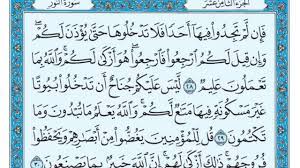 الجزء الثامن عشر سورة النور
فَإِن لَّمْ تَجِدُوا۟ فِيهَآ أَحَدًا فَلَا تَدْخُلُوهَا حَتَّىٰ يُؤْذَنَ لَكُمْ
وَإِن قِيلَ لَكُمُ ٱرْجِعُوا۟ فَٱرْجِعُوا۟ هُوَ أَزْكَىٰ لَكُمْ وَٱللَّهُ بِمَا
تَعْمَلُونَ عَلِيمٌ ٢٨ لَّيْسَ عَلَيْكُمْ جُنَاحٌ أَن تَدْخُلُوا۟ بُيُوتًا
غَيْرَ مَسْكُونَةٍ فِيهَا مَتَـٰعٌ لَّكُمْ وَٱللَّهُ يَعْلَمُ مَا تُبْدُونَ وَمَا
تَكْتُمُونَ ٢٩ قُل لِّلْمُؤْمِنِينَ يَغُضُّوا۟ مِنْ أَبْصَـٰرِهِمْ وَيَحْفَظُوا۟
فُرُوجَهُمْ ذَٰلِكَ أَزْكَىٰ لَهُمْ إِنَّ ٱللَّهَ خَبِيرٌۢ بِمَا يَصْنَعُونَ ٣٠